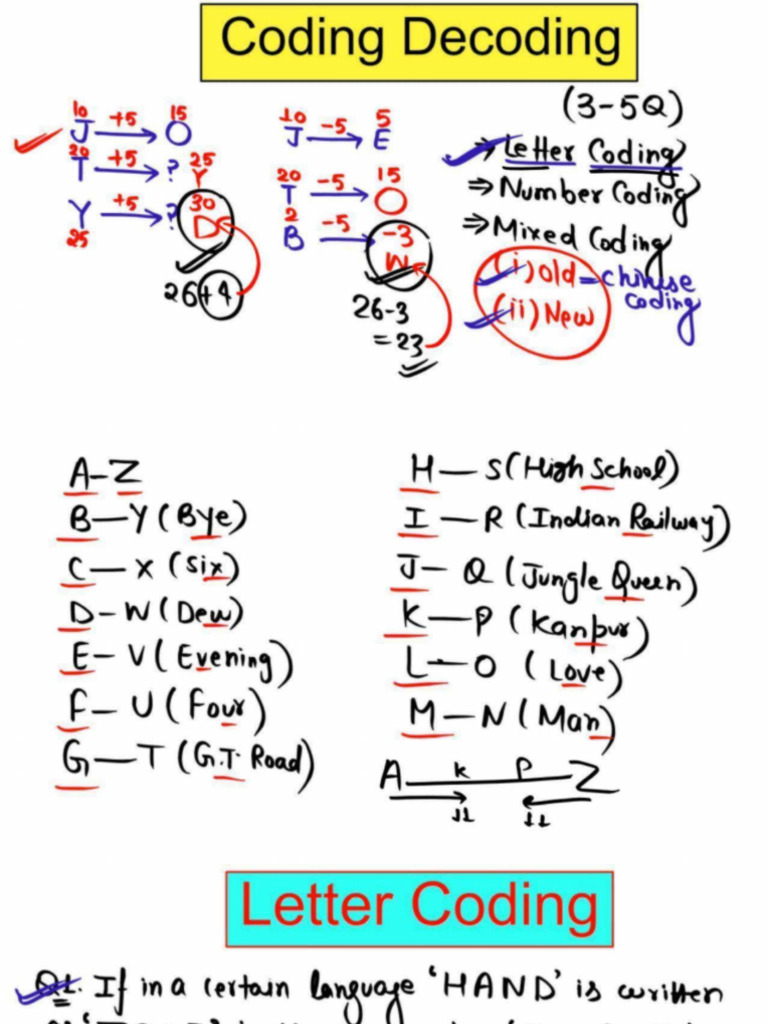 Coding Decoding
(3-5Q)
10 +5 15
J → O
20 +5 25
T → ? Y
+5 30
Y → ? D
25
26+4
10 -5 5
J → E
20 -5 15
T → O
2 -5 -3
B → W
26-3
= 23
⇒ Letter Coding
⇒ Number Coding
⇒ Mixed Coding
(i) Old = chinese
coding
(ii) New
A-Z
B-Y (Bye)
C-X (Six)
D-W (Dew)
E-V (Evening)
F-U (Four)
G-T (G.T. Road)
H-S (High School)
I-R (Indian Railway)
J-Q (Jungle Queen)
K-P (Kanpur)
L-O (Love)
M-N (Man)
A K P Z
11 11
Letter Coding
Q1. If in a certain language 'HAND' is written